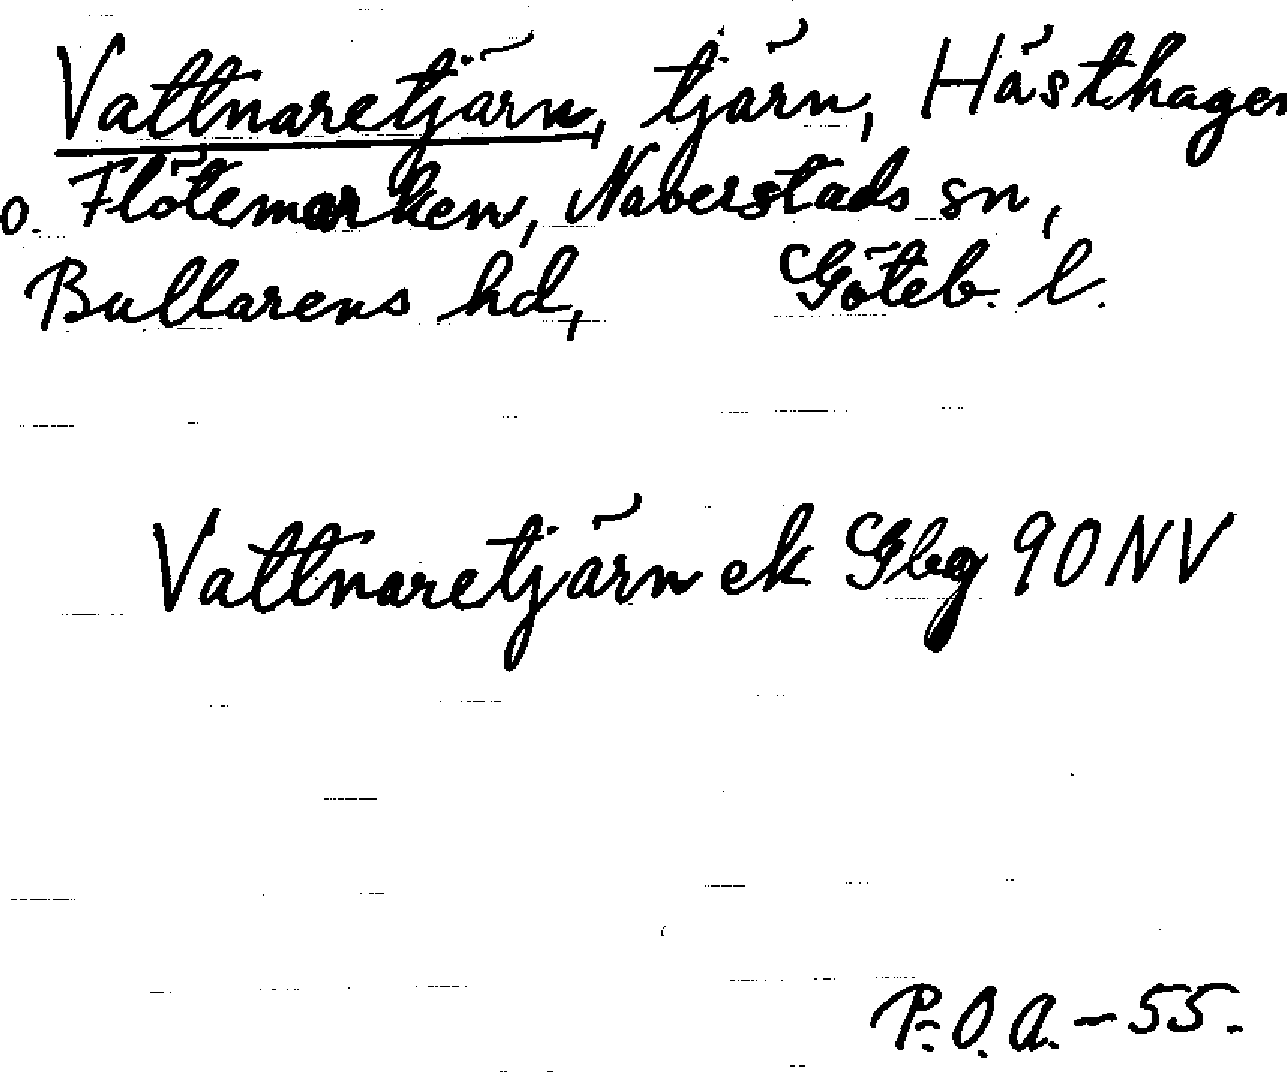 Vattnaretjärn, tjärn, Hästhagen
o. Flötemarken, Naverstads sn,
Bullarens hd, Göteb. l.
Vattnaretjärn ek Gbg 90 NV
P.O.A. - 55.